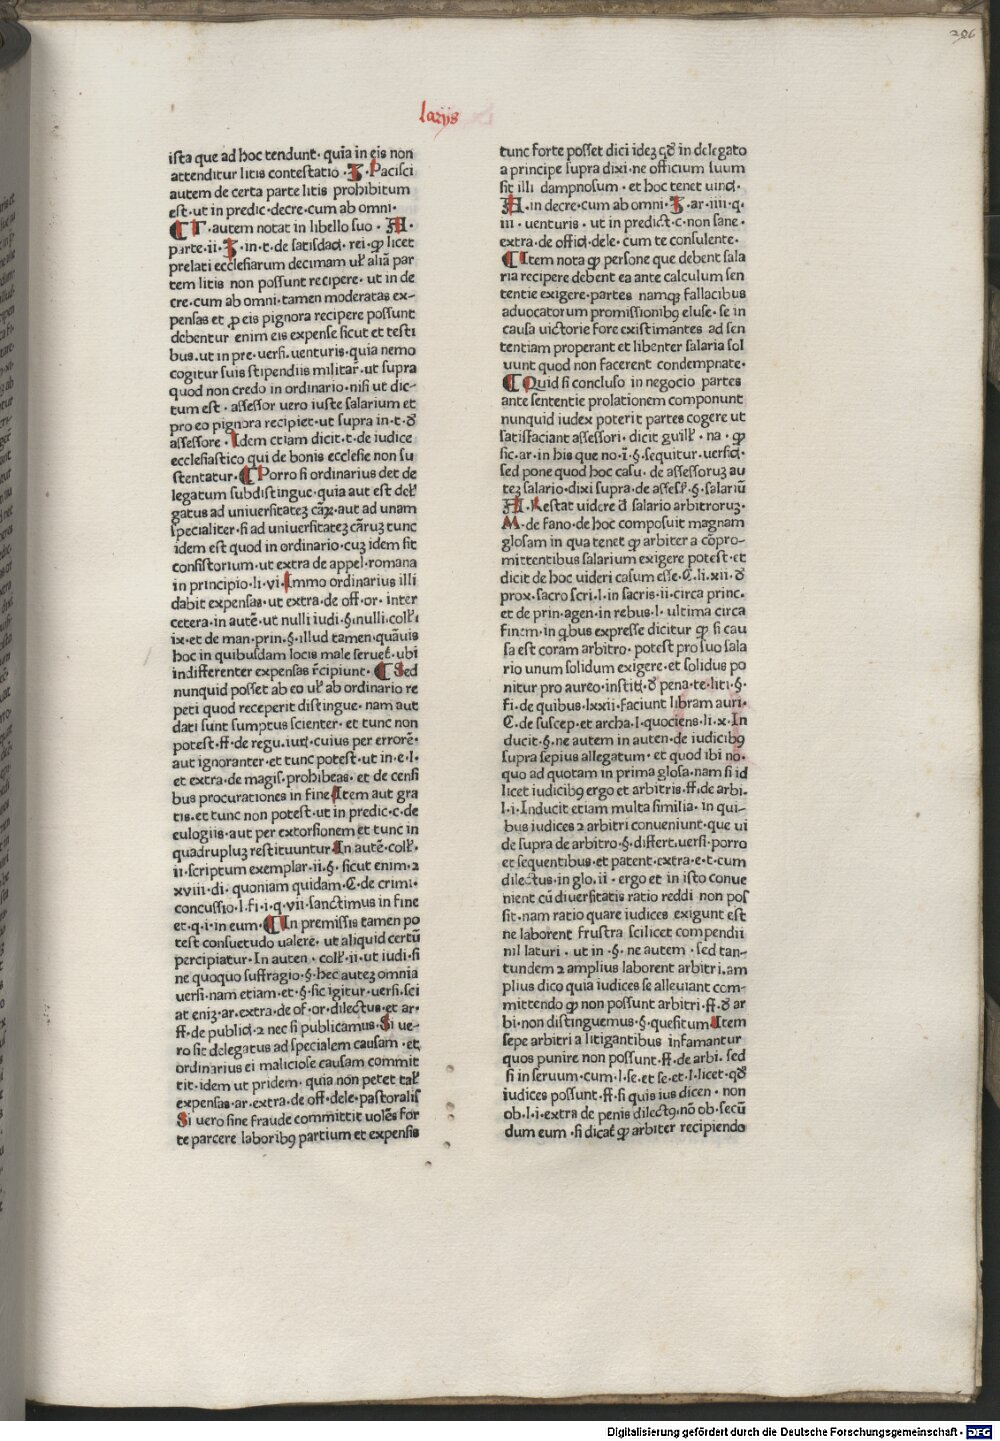 206
larijs
ista que ad hoc tendunt· quia in eis non
attenditur litis contestatio · J· Pacisci
autem de certa parte litis prohibitum
est·ut in predic·decre·cum ab omni·
¶ T·autem notat in libello suo · A·
parte·ii· J·in·t·de satisdaɖ· rei·ꝙ licet
prelati ecclesiarum decimam uł aliā par
tem litis non possunt recipere· ut in de
cre·cum ab omni·tamen moderatas ex-
pensas et ꝓ eis pignora recipere possunt
debentur enim eis expense sicut et testi
bus·ut in pre·uersi·uenturis·quia nemo
cogitur suis stipendiis militar̄·ut supra
quod non credo in ordinario·nisi ut dic-
tum est·assessor uero iuste salarium et
pro eo pignora recipiet·ut supra in·t·ð
assessore·Idem etiam dicit·t·de iudice
ecclesiastico qui de bonis ecclesie non su
stentatur·¶ Porro si ordinarius det de
legatum subdistingue·quia aut est deł
gatus ad uniuersitateȝ cāꝝ·aut ad unam
specialiter·si ad uniuersitateȝ cāruȝ tunc
idem est quod in ordinario·cuȝ idem sit
consistorium·ut extra de appel·romana
in principio·li·vi·Immo ordinarius illi
dabit expensas·ut extra·de off·or·inter
cetera·in autē·ut nulli iudi·§·nulli·colł·
ix·et de man·prin·§·illud tamen·quāuis
hoc in quibusdam locis male serueŧ·ubi
indifferenter expensas r̄cipiunt·¶ Sed
nunquid posset ab eo uł ab ordinario re
peti quod receperit distingue·nam aut
dati sunt sumptus scienter·et tunc non
potest·ff·de regu·iuɖ·cuius per errorē·
aut ignoranter·et tunc potest·ut in·e·l·
et extra·de magis·prohibeas·et de censi
bus procurationes in fine Item aut gra
tis·et tunc non potest·ut in predic·c·de
eulogiis·aut per extorsionem et tunc in
quadrupluȝ restituuntur·In autē·colł·
ii·scriptum exemplar·ii·§·sicut enim·2
xviii·di·quoniam quidam·C·de crimi·
concussio·l·fi·i·q·vii·sanctimus in fine
et·q·i·in eum·¶ In premissis tamen po
test consuetudo ualere·ut aliquid certū
percipiatur·In auten·colł·ii·ut iudi·si
ne quoquo suffragio·§·hec auteȝ omnia
uersi·nam etiam·et·§·sic igitur·uersi·sci
at eniȝ·ar·extra·de of·or·dilectus·et ar·
ff·de publiɖ·2 nec si publicamus·Si ue-
ro sit delegatus ad specialem causam·et
ordinarius ei maliciose causam commit
tit·idem ut pridem·quia non petet tał
expensas·ar·extra·de off·dele·pastoralis
Si uero sine fraude committit uolēs for
te parcere laboribꝰ partium et expensis
tunc forte posset dici ideȝ qð in delegato
a principe supra dixi·ne officium suum
sit illi dampnosum·et hoc tenet uinɖ·
A·in decre·cum ab omni·J·ar·iiii·q·
iii·uenturis·ut in predict·c·non sane·
extra·de offiɖ·dele·cum te consulente·
¶ Item nota ꝙ persone que debent sala
ria recipere debent ea ante calculum sen
tentie exigere·partes namqȝ fallacibus
aduocatorum promissionibꝰ eluse·se in
causa uictorie fore existimantes ad sen
tentiam properant et libenter salaria sol
uunt quod non facerent condempnate·
¶ Quid si concluso in negocio partes
ante sententie prolationem componunt
nunquid iudex poterit partes cogere ut
satisfaciant assessori·dicit guilł·na·ꝙ
sic·ar·in his que no·ī·§·sequitur·uersiɖ·
sed pone quod hoc casu·de assessoruȝ au
teȝ salario·dixi supra·de assesł·§·salariū
A·Restat uidere ð salario arbitroruȝ·
M·de fano·de hoc composuit magnam
glosam in qua tenet ꝙ arbiter a cōpro-
mittentibus salarium exigere potest·et
dicit de hoc uideri casum esse·C·li·xii·ð
prox·sacro scri·l·in sacris·ii·circa princ·
et de prin·agen·in rebus·l·ultima circa
finem·in qbus expresse dicitur ꝙ si cau
sa est coram arbitro·potest pro suo sala
rio unum solidum exigere·et solidus po
nitur pro aureo·instiɖ·ð pena·te·liti·§·
fi·de quibus·lxxii·faciunt libram auri·
C·de suscep·et archa·l·quociens·li·x·In
ducit·§·ne autem in auten·de iudicibꝰ
supra sepius allegatum·et quod ibi no·
quo ad quotam in prima glosa·nam si id
licet iudicibꝰ ergo et arbitris·ff·de arbi·
l·i·Inducit etiam multa similia·in qui-
bus iudices 2 arbitri conueniunt·que ui
de supra de arbitro·§·differt·uersi·porro
et sequentibus·et patent·extra·e·t·cum
dilectus·in glo·ii·ergo et in isto conue
nient cū diuersitatis ratio reddi non pos
sit·nam ratio quare iudices exigunt est
ne laborent frustra scilicet compendii
nil laturi·ut in·§·ne autem·sed tan-
tundem 2 amplius laborent arbitri·am
plius dico quia iudices se alleuiant com-
mittendo ꝙ non possunt arbitri·ff·ð ar
bi·non distinguemus·§·quesitum Item
sepe arbitri a litigantibus infamantur
quos punire non possunt·ff·de arbi·sed
si in seruum·cum·l·se·et se·et·l·licet·qð
iudices possunt·ff·si quis ius dicen·non
ob·l·i·extra de penis dilectꝰ·nō ob·secū
dum eum·si dicaŧ ꝙ arbiter recipiendo
Digitalisierung gefördert durch die Deutsche Forschungsgemeinschaft - DFG